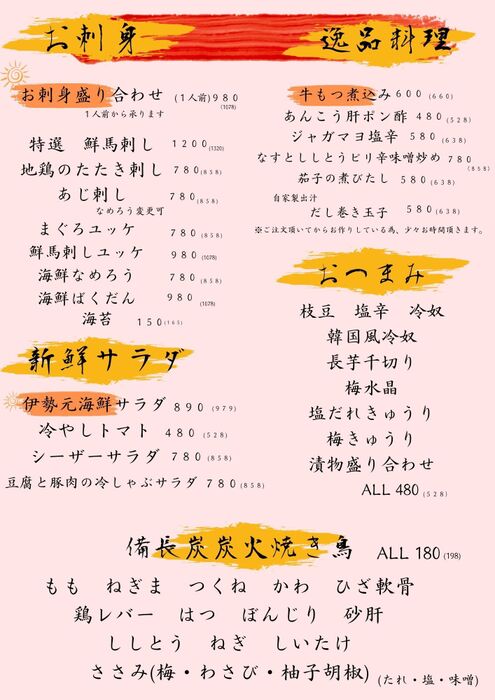 お刺身
お刺身盛り合わせ (1人前)980 (1078)
1人前から承ります
特選 鮮馬刺し 1200 (1320)
地鶏のたたき刺し 780 (858)
あじ刺し 780 (858)
なめろう変更可
まぐろユッケ 780 (858)
鮮馬刺しユッケ 980 (1078)
海鮮なめろう 780 (858)
海鮮ばくだん 980 (1078)
海苔 150 (165)
新鮮サラダ
伊勢元海鮮サラダ 890 (979)
冷やしトマト 480 (528)
シーザーサラダ 780 (858)
豆腐と豚肉の冷しゃぶサラダ 780 (858)
逸品料理
牛もつ煮込み 600 (660)
あんこう肝ポン酢 480 (528)
ジャガマヨ塩辛 580 (638)
なすとししとうピリ辛味噌炒め 780 (858)
茄子の煮びたし 580 (638)
自家製出汁
だし巻き玉子 580 (638)
※ご注文頂いてからお作りしている為、少々お時間頂きます。
おつまみ
枝豆 塩辛 冷奴
韓国風冷奴
長芋千切り
梅水晶
塩だれきゅうり
梅きゅうり
漬物盛り合わせ
ALL 480 (528)
備長炭炭火焼き鳥 ALL 180 (198)
もも ねぎま つくね かわ ひざ軟骨
鶏レバー はつ ぼんじり 砂肝
ししとう ねぎ しいたけ
ささみ(梅・わさび・柚子胡椒) (たれ・塩・味噌)